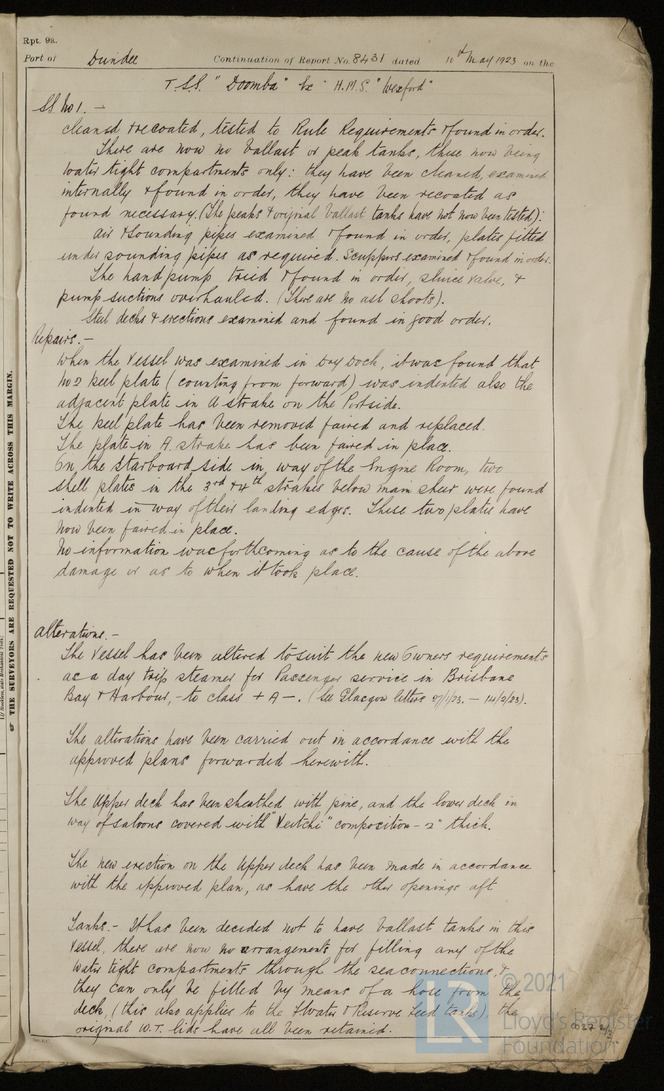 Rpt. 9a.
Port of Dundee Continuation of Report No. 8431 dated 10th May 1923 on the
T.S.S. "Doomba" ex "H.M.S." Wexford"
SS No 1. -
cleaned & recoated, tested to Rule Requirements & found in order.
There are now no ballast or peak tanks, these now being
water tight compartments only: they have been cleaned, examined
internally & found in order, they have been recoated as
found necessary. (The peaks & original ballast tanks have not now been tested):
Air & Sounding pipes examined & found in order, plates fitted
under sounding pipes as required. Scuppers examined & found in order.
The hand pump tried & found in order, sluice valve, &
pump suctions overhauled. (There are no ash shoots).
Steel decks & erections examined and found in good order.
Repairs. -
When the Vessel was examined in Dry Dock, it was found that
No 2 keel plate (counting from forward) was indented also the
adjacent plate in A strake on the Portside.
The keel plate has been removed faired and replaced.
The plate in A. strake has been faired in place.
On the Starboard side in way of the Engine Room, two
shell plates in the 3rd & 4th strakes below main sheer were found
indented in way of their landing edges. These two plates have
now been faired in place.
No information was forthcoming as to the cause of the above
damage or as to when it took place.
Alterations. -
The Vessel has been altered to suit the new Owners requirements
as a day trip steamer for Passenger service in Brisbane
Bay & Harbour, - to class + A -. (See Glasgow letters 9/1/23. - 14/2/23).
The alterations have been carried out in accordance with the
approved plans forwarded herewith.
The Upper deck has been sheathed with pine, and the lower deck in
way of saloons covered with "Veitchi" composition - 2" thick.
The new erection on the Upper deck has been made in accordance
with the approved plan, as have the other openings aft
Tanks. - It has been decided not to have ballast tanks in this
Vessel, there are now no arrangements for filling any of the
water tight compartments through the sea connections, &
they can only be filled by means of a hose from the
deck, (this also applies to the F Water & Reserve Feed tanks), the
original W.T. lids have all been retained.
THE SURVEYORS ARE REQUESTED NOT TO WRITE ACROSS THIS MARGIN.
LR
© 2021
Lloyd's Register
Foundation